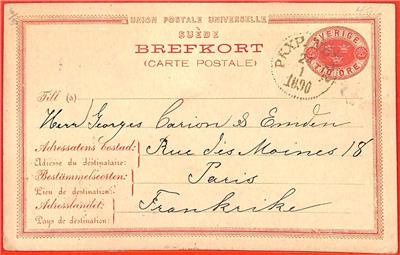 UNION POSTALE UNIVERSELLE
SUÈDE
BREFKORT
(CARTE POSTALE)
SVERIGE
TIO ÖRE
PKXP
2
1
1890
Till (à)
Herr Georges Carion S Emden
Adressatens bostad: Rue des Moines 18
Adresse du déstinataire:
Bestämmelseorten: Paris
Lieu de destination:
Adresslandet: Frankrike
Pays de destination: